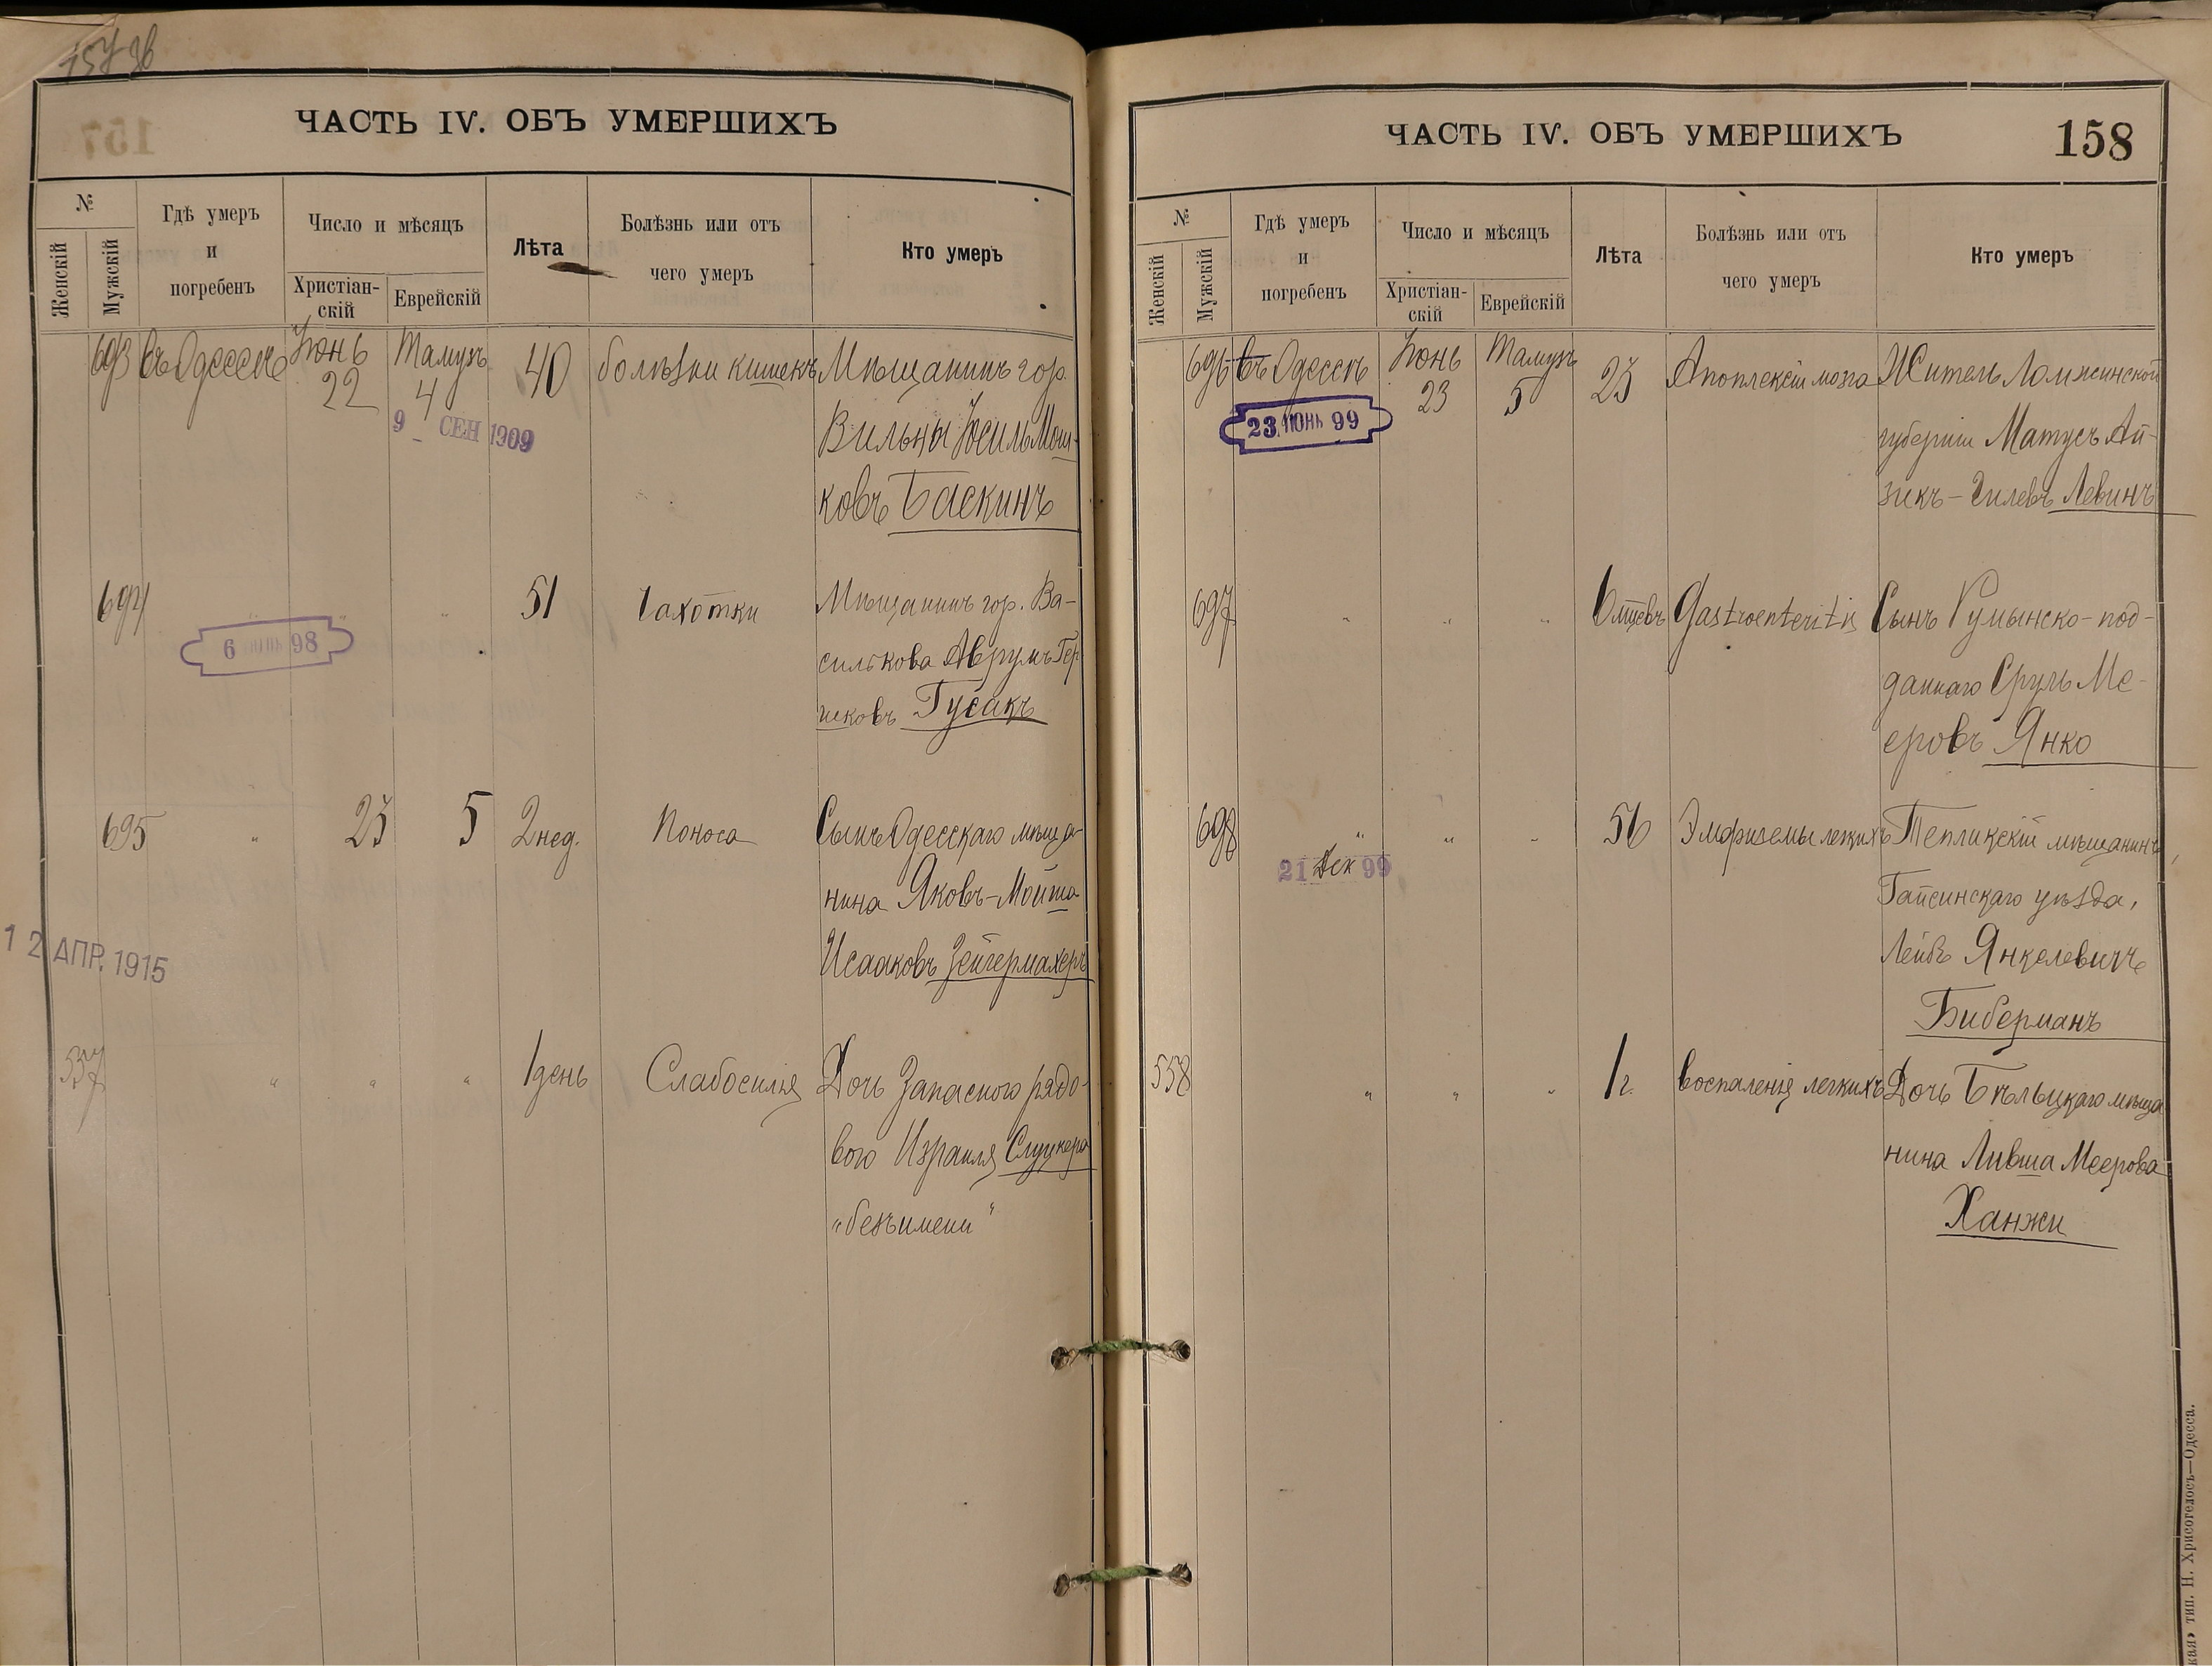 ЧАСТЬ IV. ОБЪ УМЕРШИХЪ
№
Женскій
Мужскій
Гдѣ умеръ
и
погребенъ
Число и мѣсяцъ
Христіан-
скій
Еврейскій
Лѣта
Болѣзнь или отъ
чего умеръ
Кто умеръ
693 въ Одессѣ Іюнь 22 Тамузъ 4 40 болѣзни кишекъ Мѣщанинъ гор.
9 - СЕН 1909
Вильны Іосиль Мош-
ковъ Баскинъ
694 " " 51 Чахотки Мѣщанинъ гор. Ва-
6 98
силькова Аврумъ Гер
шковъ Гусакъ
695 " 23 5 2 нед. Поноса Сынъ Одесскаго мѣща-
нина Яковъ-Мойша
Исааковъ Зейгермахеръ
12 АПР. 1915
537 " " " 1 день Слабосилія Дочь Запасного рядо-
вого Израиля Слуцкера
"безъ имени"
ЧАСТЬ IV. ОБЪ УМЕРШИХЪ
158
№
Женскій
Мужскій
Гдѣ умеръ
и
погребенъ
Число и мѣсяцъ
Христіан-
скій
Еврейскій
Лѣта
Болѣзнь или отъ
чего умеръ
Кто умеръ
696 въ Одессѣ Іюнь 23 Тамузъ 5 23 Апоплексіи мозга Житель Ломжинской
23 ІЮНЬ 99
губерніи Матусъ Ай-
зикъ- Левинъ
697 " " " 6 мцевъ Gastroenteritis Сынъ Румынско-под-
даннаго Сруль Ме-
еровъ Янко
698 " " " 56 Эмфиземы легкихъ Тепликскій мѣщанинъ,
21 Дек 99
Гайсинскаго уѣзда,
Лейбъ Янкелевичъ
Биберманъ
558 " " " 1 г. воспаленія легкихъ Дочь Бѣльцкаго мѣща
нина Ливша Меерова
Ханжи
тип. Н. Хрисогелосъ—Одесса.